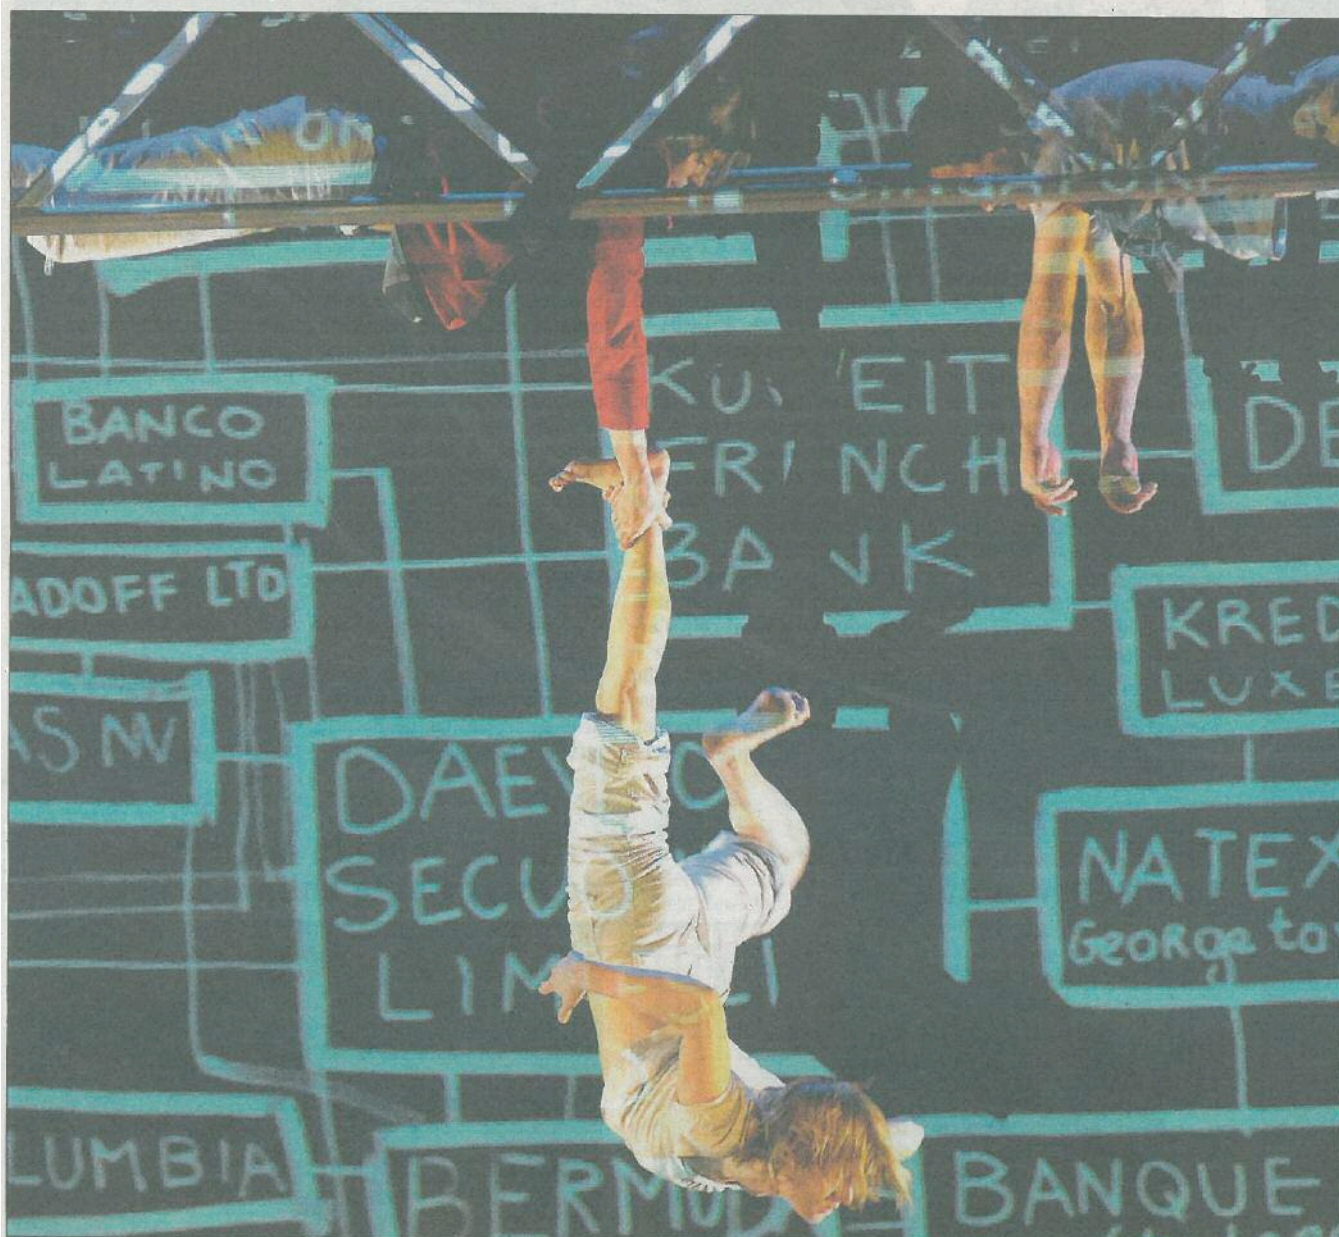 BANCO
LATINO
KU 'EIT
FR NCH
BA NK
DE
ADOFF LTD
KRED
LUXE
AS NV
DAEWO
SECU
LIM
NATEX
George to
LUMBIA
BERMUDA
BANQUE